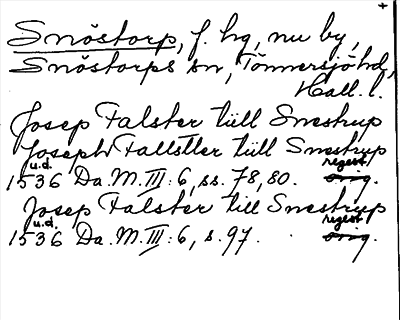 +
Snöstorp, f. hg, nu by,
Snöstorps sn, Tönnersjöhd,
Hall. l.
Josep Falster tüll Snestrup
Joseph Fallstler tüll Snestrup
u.d. regest
1536 Da. M. III: 6, ss. 78, 80. orig.
Josep Falster till Snestrup
u.d. regest
1536 Da. M. III: 6, s. 97. orig.